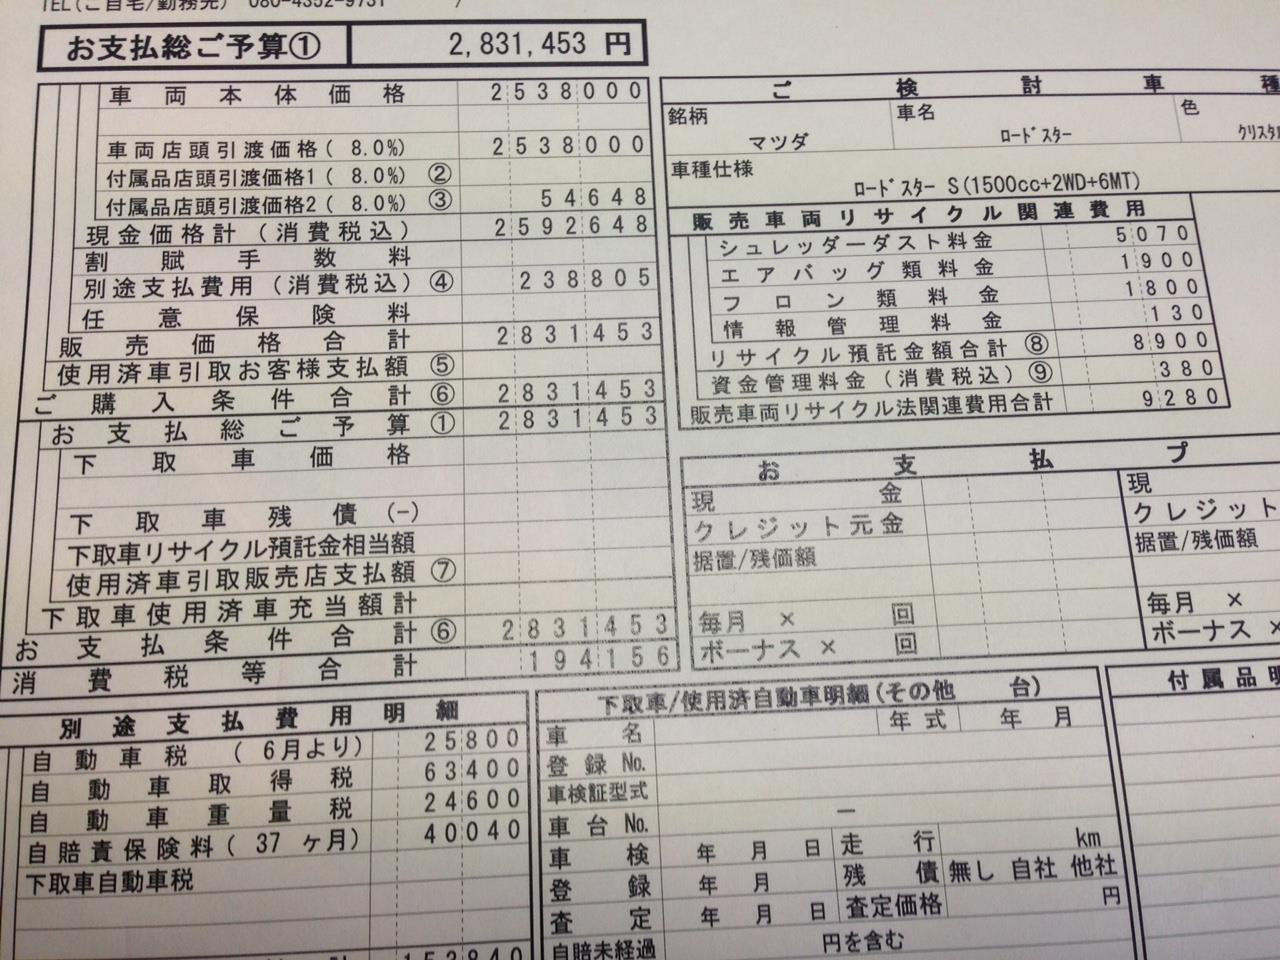 TEL(ご自宅/勤務先) 080-4352-9731
お支払総ご予算① 2,831,453 円
車両本体価格 2538000
車両店頭引渡価格( 8.0%) 2538000
付属品店頭引渡価格1( 8.0%) ②
付属品店頭引渡価格2( 8.0%) ③ 54648
現金価格計(消費税込) 2592648
割賦手数料
別途支払費用(消費税込) ④ 238805
任意保険料
販売価格合計 2831453
使用済車引取お客様支払額 ⑤
ご購入条件合計 ⑥ 2831453
お支払総ご予算 ① 2831453
下取車価格
下取車残債(-)
下取車リサイクル預託金相当額
使用済車引取販売店支払額 ⑦
下取車使用済車充当額計
お支払条件合計 ⑥ 2831453
消費税等合計 194156
ご検討車種
銘柄 マツダ
車名 ロードスター
色
車種仕様
ロードスター S(1500cc+2WD+6MT)
販売車両リサイクル関連費用
シュレッダーダスト料金 5070
エアバッグ類料金 1900
フロン類料金 1800
情報管理料金 130
リサイクル預託金額合計 ⑧ 8900
資金管理料金(消費税込) ⑨ 380
販売車両リサイクル法関連費用合計 9280
お支払プ
現金 現
クレジット元金 クレジット
据置/残価額 据置/残価額
毎月 × 回 毎月 ×
ボーナス × 回 ボーナス ×
別途支払費用明細
自動車税 ( 6月より) 25800
自動車取得税 63400
自動車重量税 24600
自賠責保険料( 37 ヶ月) 40040
下取車自動車税
計 153840
下取車/使用済自動車明細(その他 台)
車名 年式 年 月
登録No.
車検証型式
車台No. ー
車検 年 月 日 走行 km
登録 年 月 残債 無し 自社 他社
査定 年 月 日 査定価格 円
自賠未経過 円を含む
付属品明